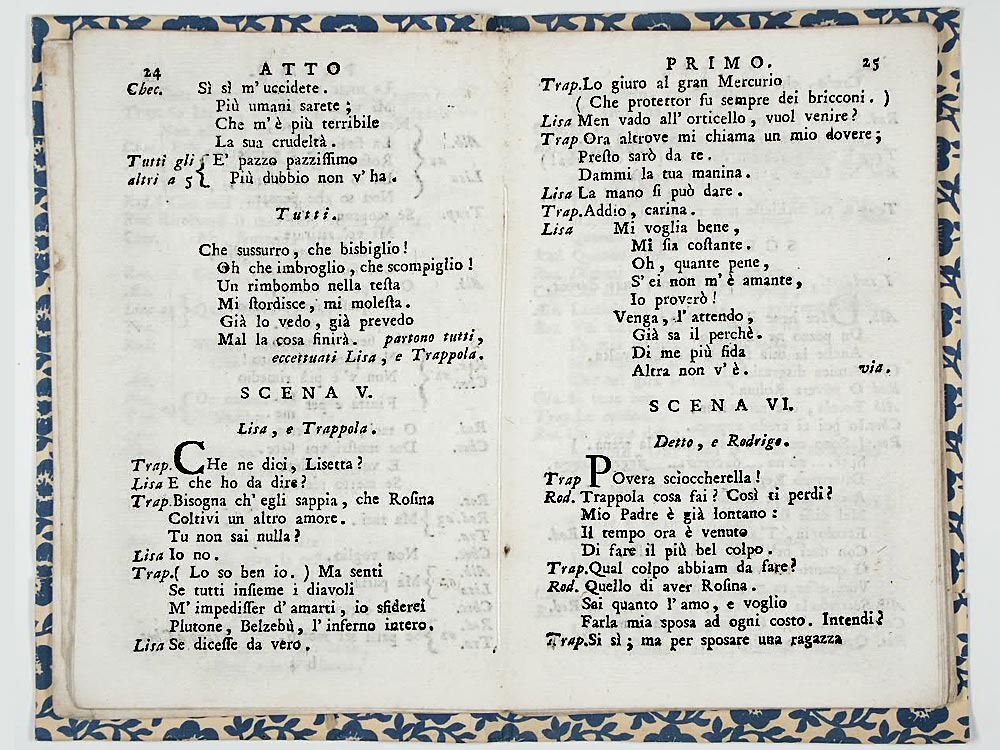 24 ATTO
Chec. Sì sì m' uccidete.
Più umani sarete ;
Che m' è più terribile
La sua crudeltà.
Tutti gli { E' pazzo pazziſſimo
altri a 5 { Più dubbio non v' ha.
Tutti.
Che sussurro, che bisbiglio!
Oh che imbroglio, che scompiglio!
Un rimbombo nella teſta
Mi ſtordisce, mi moleſta.
Già lo vedo, già prevedo
Mal la cosa finirà. partono tutti,
eccettuati Lisa, e Trappola.
SCENA V.
Lisa, e Trappola.
Trap. CHe ne dici, Lisetta?
Lisa E che ho da dire?
Trap. Bisogna ch' egli sappia, che Roſina
Coltivi un altro amore.
Tu non sai nulla?
Lisa Io no.
Trap. ( Lo so ben io. ) Ma senti
Se tutti inſieme i diavoli
M' impediſſer d' amarti, io sfiderei
Plutone, Belzebù, l' inferno intero.
Lisa Se diceſſe da vero.
PRIMO. 25
Trap. Lo giuro al gran Mercurio
( Che protettor fu sempre dei bricconi. )
Lisa Men vado all' orticello, vuol venire?
Trap Ora altrove mi chiama un mio dovere;
Preſto sarò da te.
Dammi la tua manina.
Lisa La mano ſi può dare.
Trap. Addio, carina.
Lisa Mi voglia bene,
Mi ſia coſtante.
Oh, quante pene,
S' ei non m' è amante,
Io proverò!
Venga, l' attendo,
Già sa il perchè.
Di me più fida
Altra non v' è. via.
SCENA VI.
Detto, e Rodrigo.
Trap POvera scioccherella!
Rod. Trappola cosa fai? Così ti perdi?
Mio Padre è già lontano:
Il tempo ora è venuto
Di fare il più bel colpo.
Trap. Qual colpo abbiam da fare?
Rod. Quello di aver Roſina.
Sai quanto l' amo, e voglio
Farla mia sposa ad ogni costo. Intendi?
Trap. Si sì; ma per sposare una ragazza